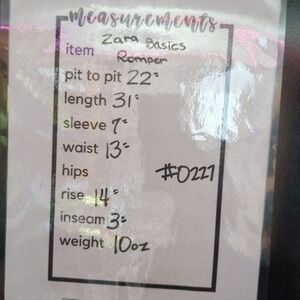 measurements
Zara Basics
item Romper
pit to pit 22"
length 31"
sleeve 7"
waist 13"
hips #0227
rise 14"
inseam 3"
weight 10oz